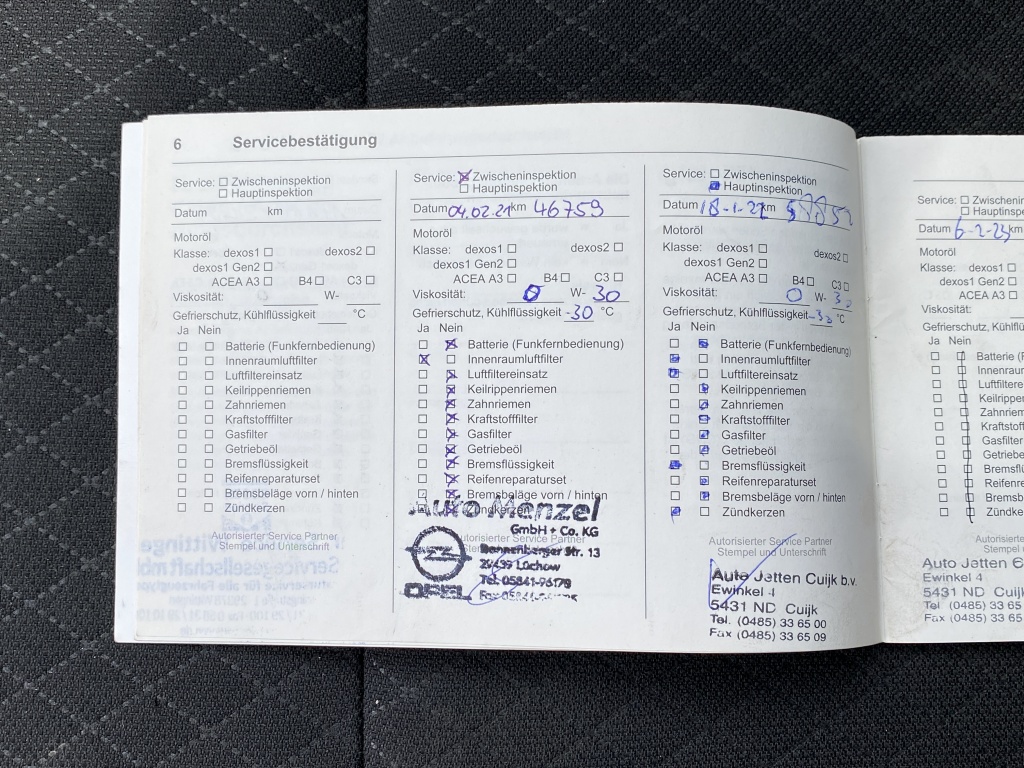 6 Servicebestätigung
Service: Zwischeninspektion
Hauptinspektion
Datum km
Motoröl
Klasse: dexos1 dexos2
dexos1 Gen2
ACEA A3 B4 C3
Viskosität: W-
Gefrierschutz, Kühlflüssigkeit °C
Ja Nein
Batterie (Funkfernbedienung)
Innenraumluftfilter
Luftfiltereinsatz
Keilrippenriemen
Zahnriemen
Kraftstofffilter
Gasfilter
Getriebeöl
Bremsflüssigkeit
Reifenreparaturset
Bremsbeläge vorn / hinten
Zündkerzen
Autorisierter Service Partner
Stempel und Unterschrift
Service: Zwischeninspektion
Hauptinspektion
Datum 04.02.21 km 46759
Motoröl
Klasse: dexos1 dexos2
dexos1 Gen2
ACEA A3 B4 C3
Viskosität: 0 W- 30
Gefrierschutz, Kühlflüssigkeit -30 °C
Ja Nein
Batterie (Funkfernbedienung)
Innenraumluftfilter
Luftfiltereinsatz
Keilrippenriemen
Zahnriemen
Kraftstofffilter
Gasfilter
Getriebeöl
Bremsflüssigkeit
Reifenreparaturset
Bremsbeläge vorn / hinten
Zündkerzen
Auto Menzel
GmbH + Co. KG
Autorisierter Service Partner
Dannenberger Str. 13
29439 Lüchow
Tel. 05841-96178
OPEL
Service: Zwischeninspektion
Hauptinspektion
Datum 18-1-22 km
Motoröl
Klasse: dexos1 dexos2
dexos1 Gen2
ACEA A3 B4 C3
Viskosität: 0 W- 30
Gefrierschutz, Kühlflüssigkeit -30 °C
Ja Nein
Batterie (Funkfernbedienung)
Innenraumluftfilter
Luftfiltereinsatz
Keilrippenriemen
Zahnriemen
Kraftstofffilter
Gasfilter
Getriebeöl
Bremsflüssigkeit
Reifenreparaturset
Bremsbeläge vorn / hinten
Zündkerzen
Autorisierter Service Partner
Stempel und Unterschrift
Auto Jetten Cuijk b.v.
Ewinkel 4
5431 ND Cuijk
Tel. (0485) 33 65 00
Fax (0485) 33 65 09
Service: Zwischenin
Hauptinspe
Datum 6-2-23 km
Motoröl
Klasse: dexos1
dexos1 Gen2
ACEA A3
Viskosität:
Gefrierschutz, Kühlflüssi
Ja Nein
Batterie (F
Innenraum
Luftfiltere
Keilrippen
Zahnriem
Kraftstoff
Gasfilter
Getriebe
Bremsflü
Reifenre
Bremsbe
Zündke
Autorisierter S
Stempel und
Auto Jetten
Ewinkel 4
5431 ND Cuij
Tel (0485) 33 65
Fax (0485) 33 65